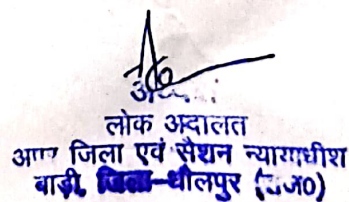 लोक अदालत
अपर जिला एवं सैशन न्यायाधीश
बाड़ी, जिला-धौलपुर (राज०)